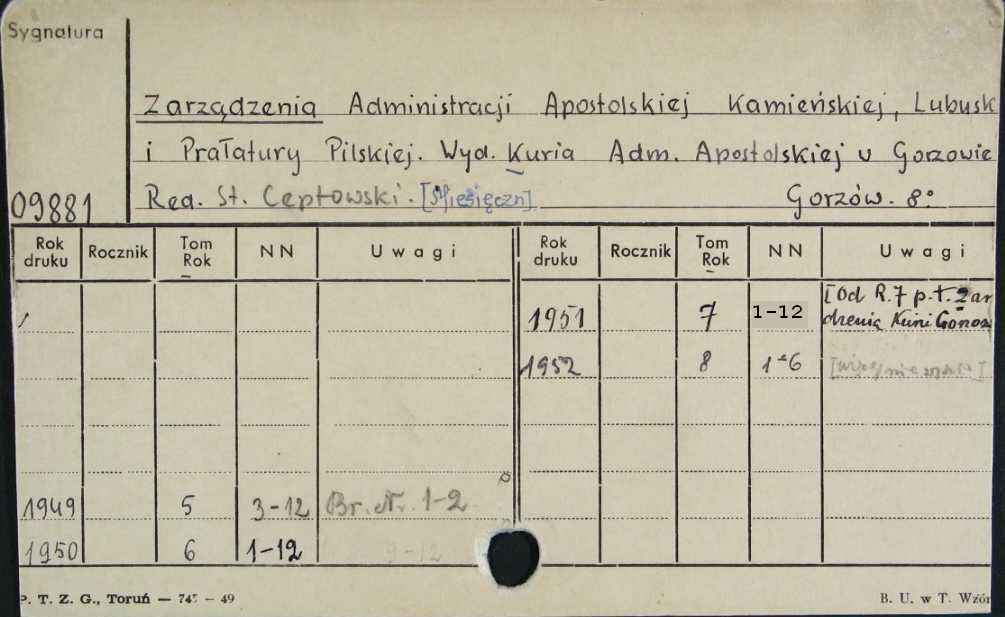 Sygnatura
Zarządzenia Administracji Apostolskiej Kamieńskiej, Lubusk
i Prałatury Pilskiej. Wyd. Kuria Adm. Apostolskiej w Gorzowie
09881 Red. St. Ceptowski. [Miesięczn] Gorzów. 8º
Rok druku Rocznik Tom Rok NN Uwagi Rok druku Rocznik Tom Rok NN Uwagi
[Od R. 7 p.t. Zar
1951 7 1-12 dzenia Kurii Gorzow
1952 8 1-6
1949 5 3-12 Br. Nr. 1-2
1950 6 1-12 9-12
P. T. Z. G., Toruń — 745 — 49 B. U. w T. Wzór